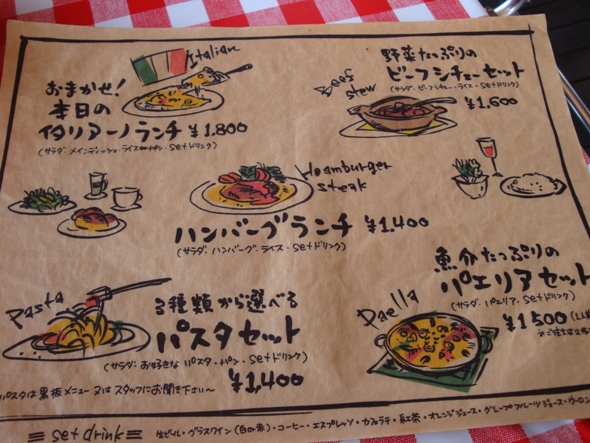 おまかせ!
本日の
イタリアーノランチ ¥1,800
Italian
Beef
stew
野菜たっぷりの
ビーフシチューセット
(サラダ・ビーフシチュー・ライス・setドリンク)
¥1,600
Hoamburger
steak
ハンバーグランチ ¥1,400
(サラダ・ハンバーグ・ライス・setドリンク)
Pasta
3種類から選べる
パスタセット
(サラダ・お好きなパスタ・パン・setドリンク)
¥1,400
パスタは黒板メニュー又はスタッフにお聞き下さい〜
Paella
魚介たっぷりの
パエリアセット
(サラダ・パエリア・setドリンク)
¥1500
set drink
生ビール・グラスワイン(白or赤)・コーヒー・エスプレッソ・カフェラテ・紅茶・オレンジジュース・グレープフルーツジュース・ウーロン